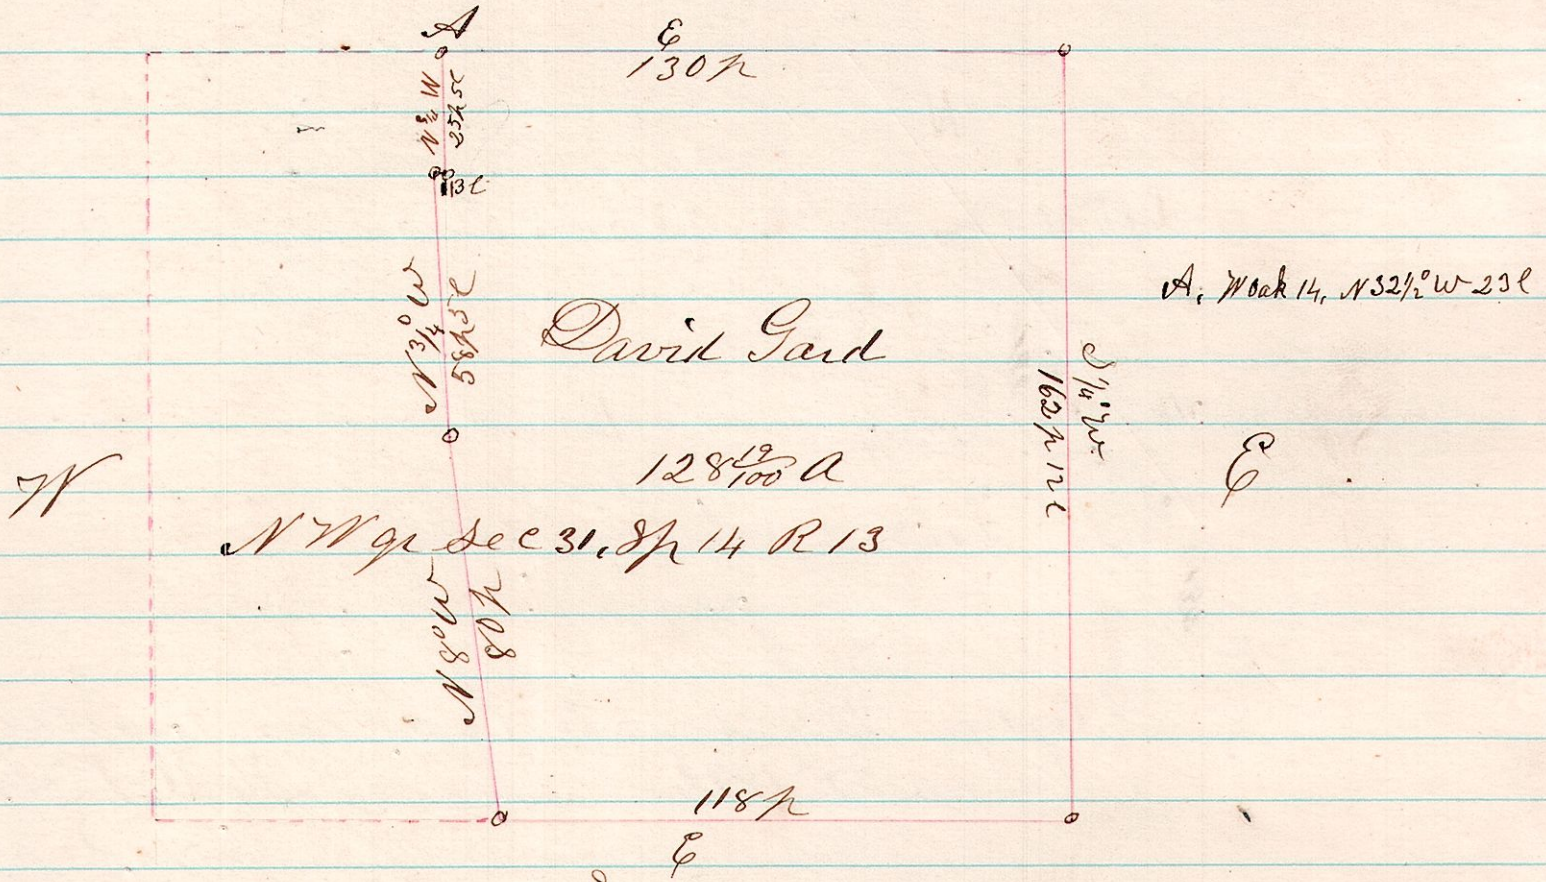 A
E
130 p
N ¾ W
25 p 5 l
13 l
N 3¼° W
58 p 5 l
David Gard
A, W oak 14, N 32½° W 23 l
S ¼° W.
162 p 12 l
W
128 19/100 A
E
N W qr Sec 31, Tp 14 R 13
N 8° W
80 p
118 p
E